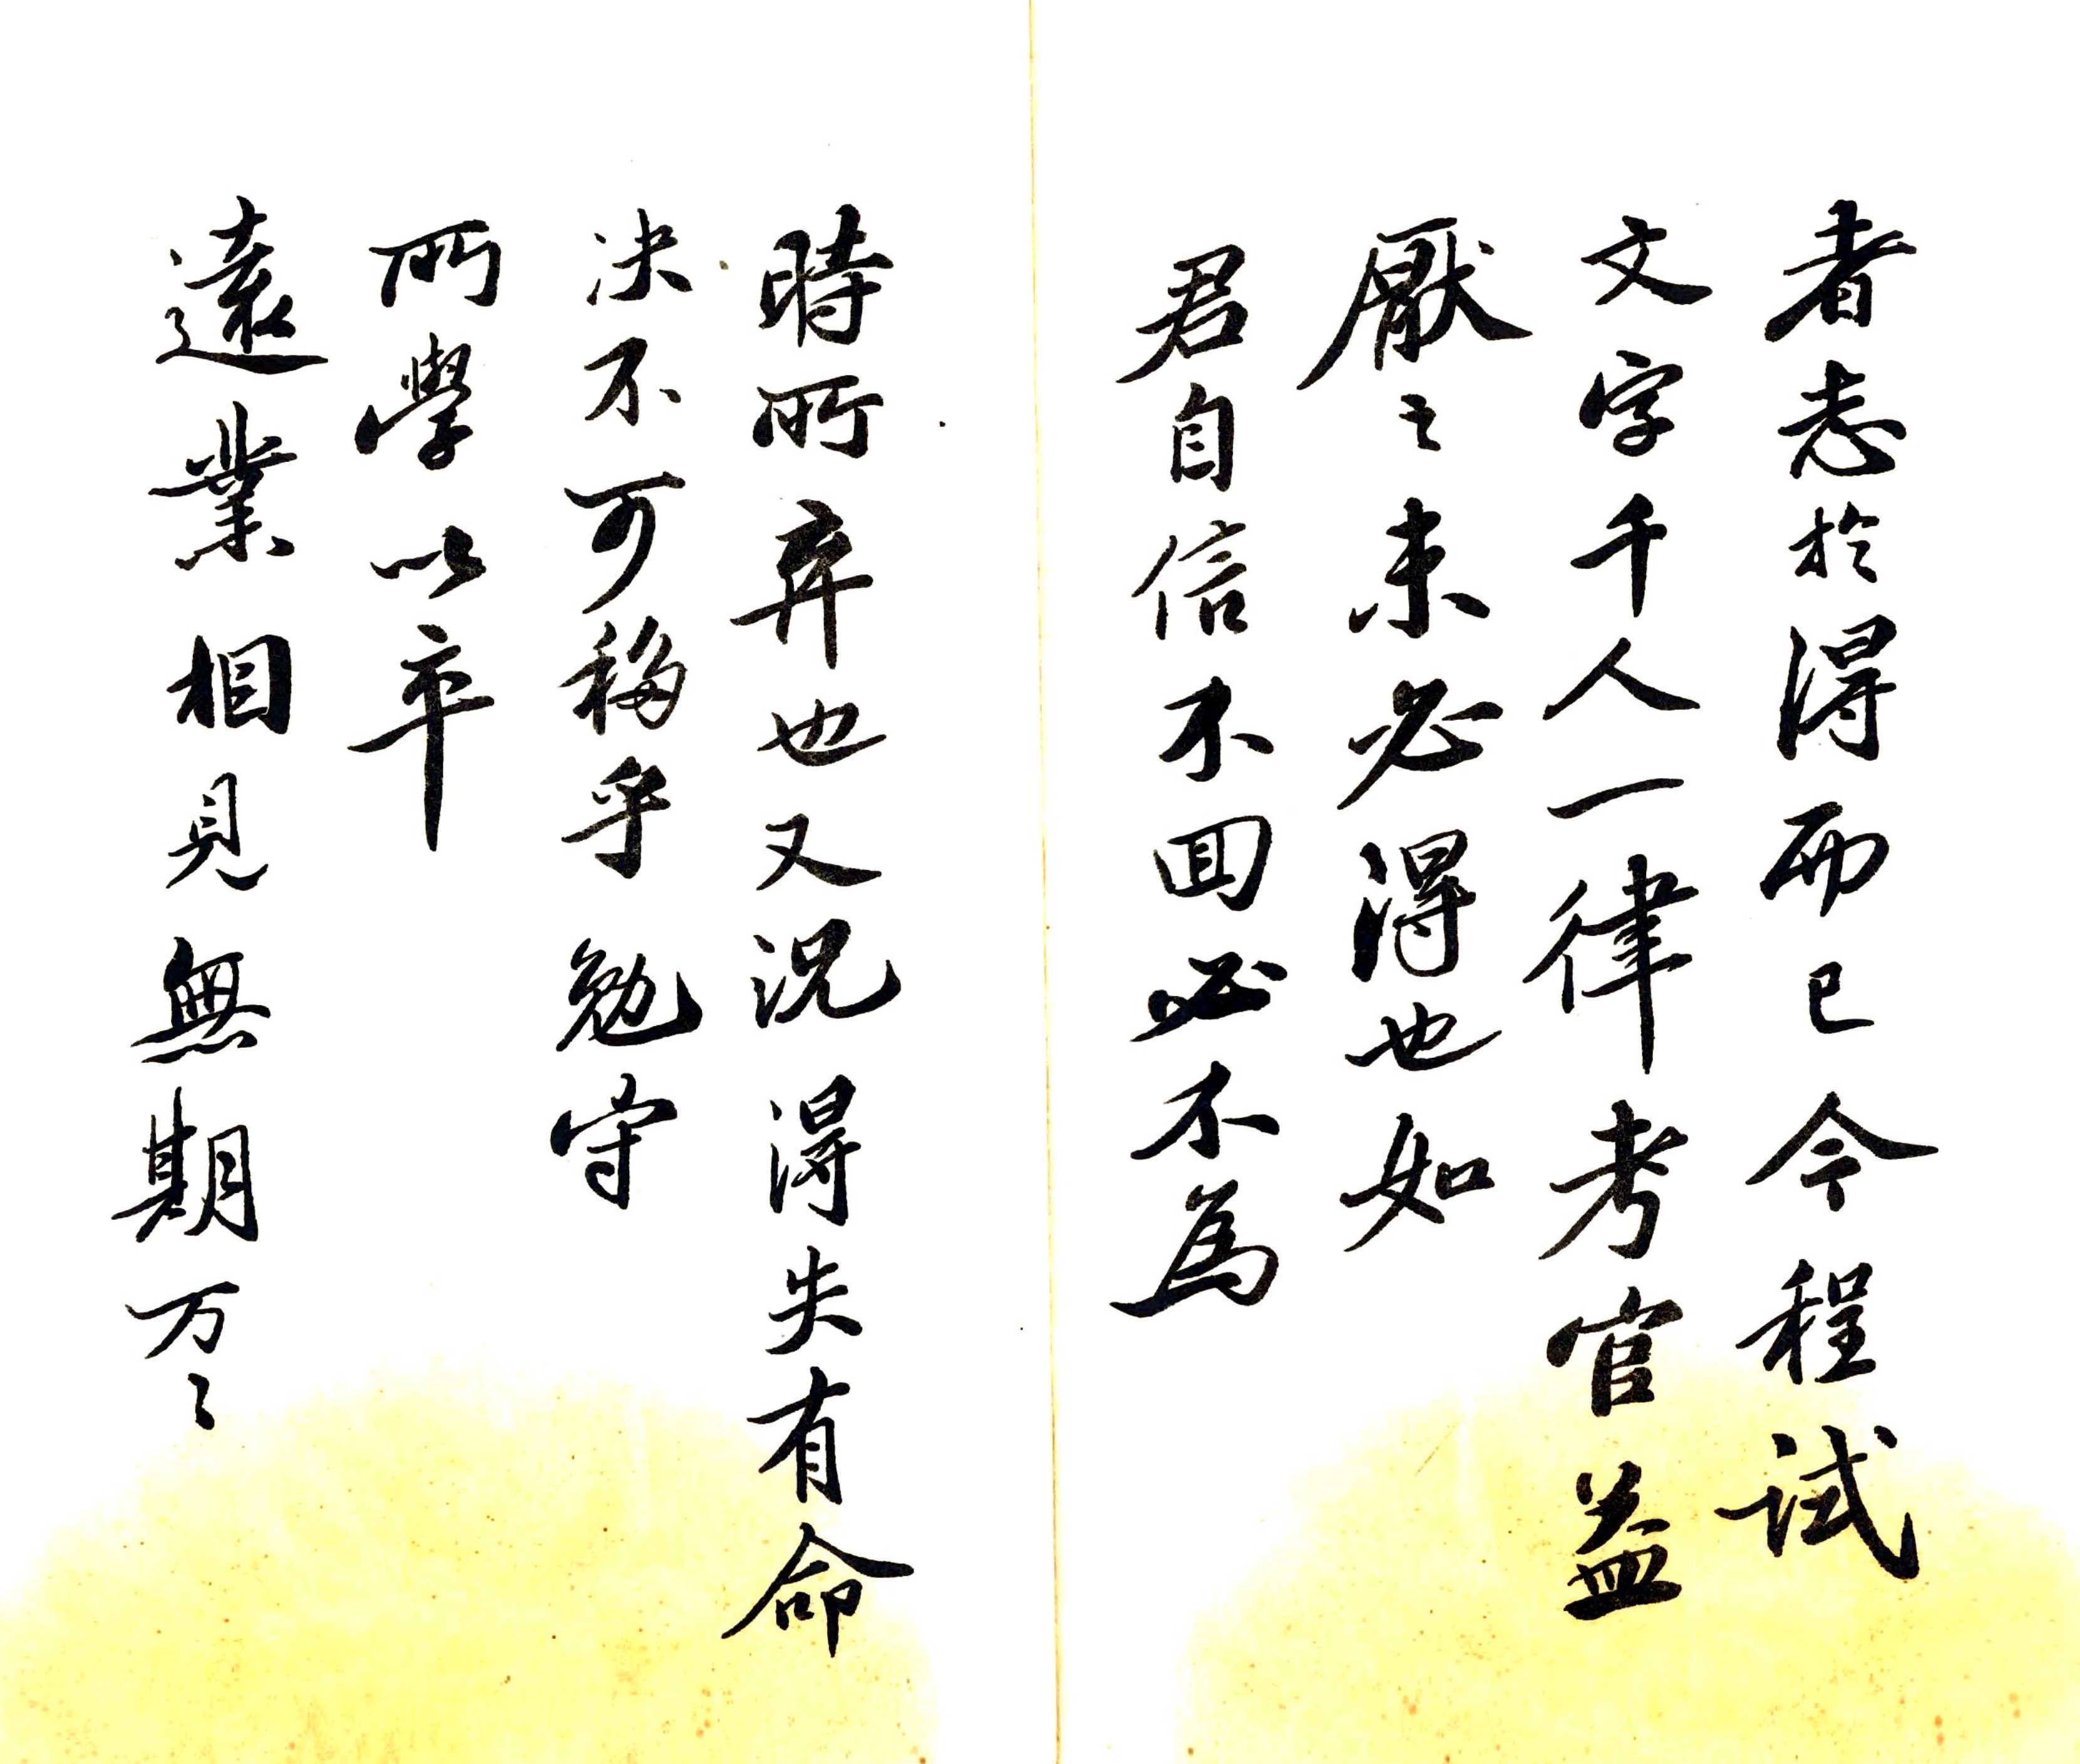 者志於得而已今程試
文字千人一律考官益
厭之未必得也如
君自信不回必不為
時所棄也又况得失有命
决不可移乎勉守
所學以卒
遠業相見無期万々